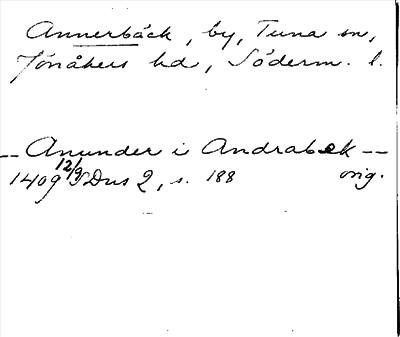 Annerbäck, by, Tuna sn,
Jönåkers hd, Söderm. l.
-- Anunder i Andrabæk --
1409 12/9 SDns 2, s. 188 orig.